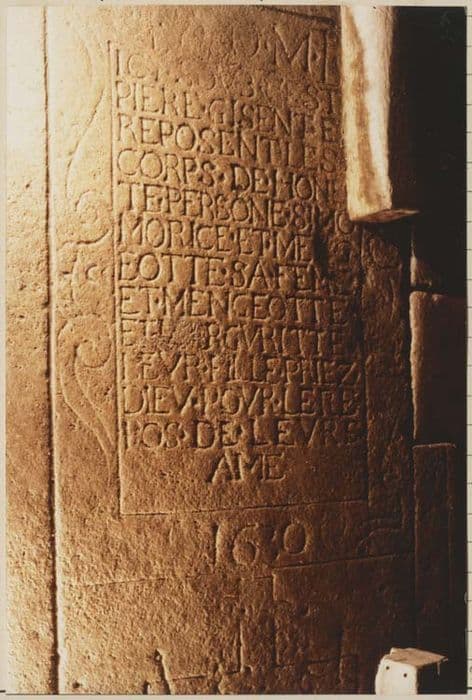 D M I
IC ST
PIERE · GISENT E
REPOSENT LES
CORPS · DE HON
TE · PERSONE · SIMO
MORICE · ET · ME
EOTTE SA FEM
ET · MENGEOTTE
ET RGVRITTE
LEVR LLE PRIEZ
DIEV · POVR · LE RE
POS · DE · LEVRS
AME
1630